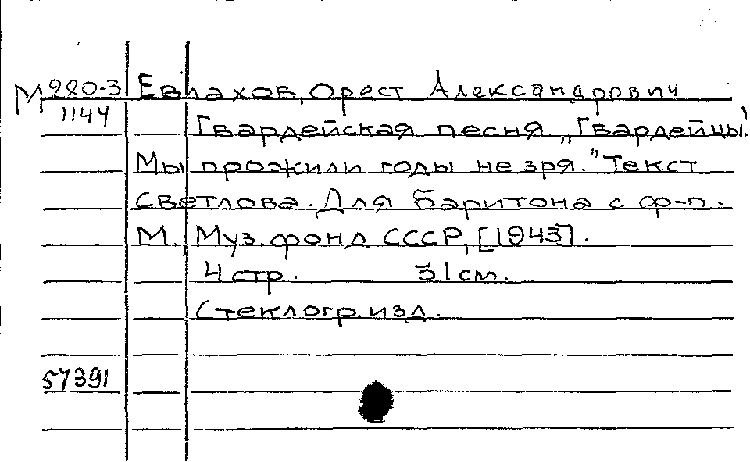 М 220-3 Евлахов, Орест Александрович
1144
Гвардейская песня „Гвардейцы!
Мы прожили годы не зря." Текст
Светлова. Для баритона с ф-п.
М. Муз. фонд СССР, [1943].
4 стр. 31 см.
Стеклогр. изд.
57391